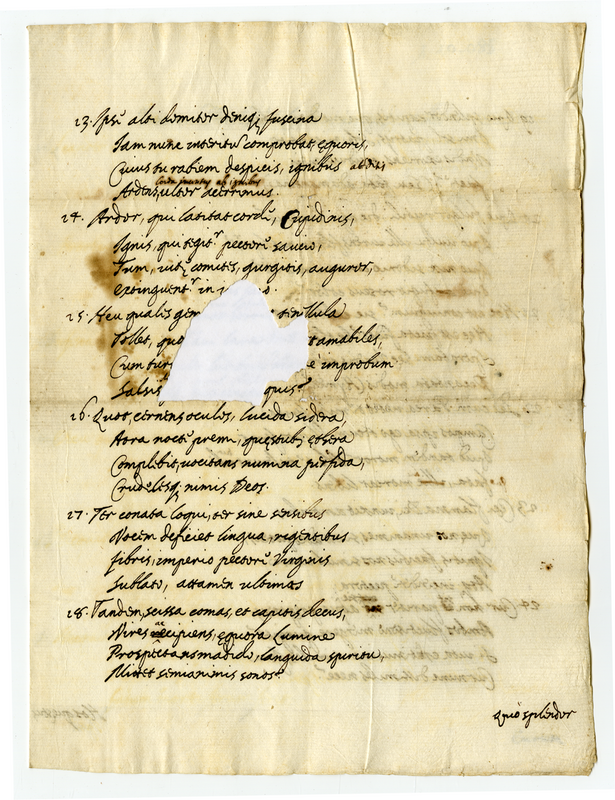 23. Ipsū alti domitor deniq; fuscina
Iam nunc interitū comprobat, ęquoris,
Cuius tu rabiem despicis, ignibus
Corda ab ignibus
Ardens, ultor
24. Ardor, qui latitat cordū, Cupidinis,
Ignis, qui tegitr pectorū saucio,
Tum, vitę comitis, gurgitis, auguror,
extinguentr in
25. Heu qualis gem
Tollet, quo tamabiles,
Cum tur improbum
Salsis quis?
26. Quot, cernens oculos, lucida sidera,
Atra nocte premi, quęstub; ęthera
Complebit, vocitans numina perfida,
Crudelesq; nimis Deos.
27. Ter conata loqui, ter sine sensibus
Vocem deficiet lingua, regentibus
fibris, imperio pectorū Virginis
Sublato, attamen ultimas
28. Tandem, scissa comas, et capitis decus,
Vires accipiens, ęquora lumine
Prospectans madido, languida spiritu,
Mittet semianimis sonos?
Quo splendor